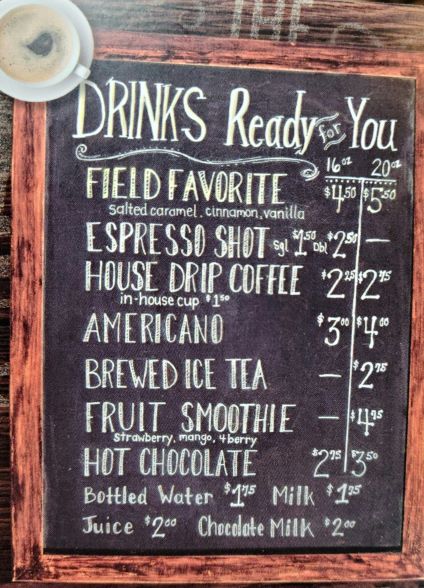 DRINKS Ready for You
16oz 20oz
FIELD FAVORITE $4.50 $5.50
salted caramel, cinnamon, vanilla
ESPRESSO SHOT Sgl $1.50 Dbl $2.50 —
HOUSE DRIP COFFEE $2.25 $2.75
in-house cup $1.50
AMERICANO $3.00 $4.00
BREWED ICE TEA — $2.75
FRUIT SMOOTHIE — $4.75
strawberry, mango, 4 berry
HOT CHOCOLATE $2.75 $3.50
Bottled Water $1.75 Milk $1.25
Juice $2.00 Chocolate Milk $2.00